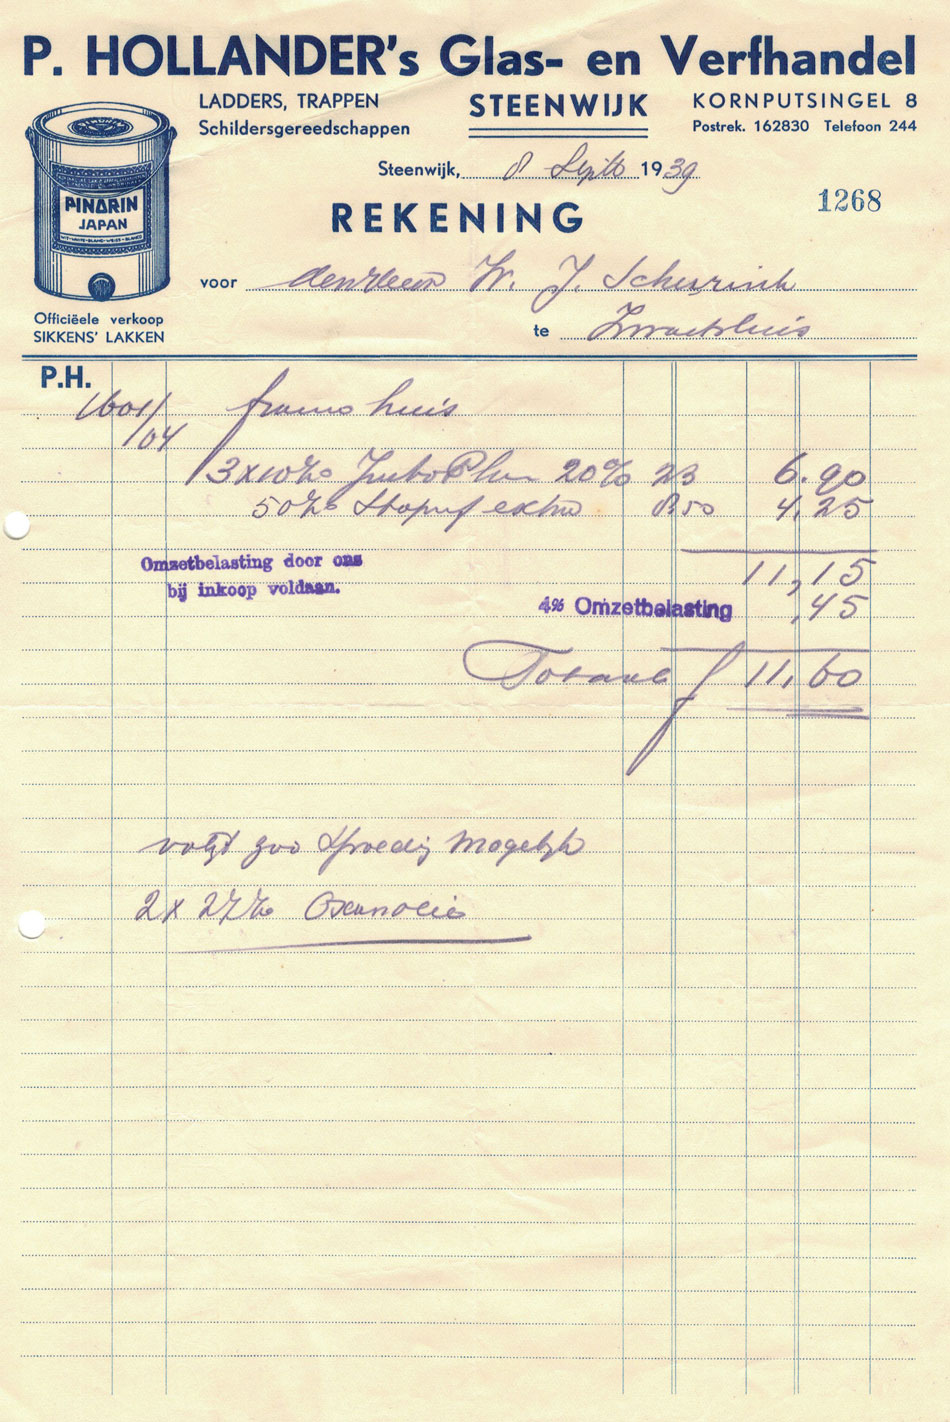 P. HOLLANDER's Glas- en Verfhandel
LADDERS, TRAPPEN
Schildersgereedschappen
STEENWIJK
KORNPUTSINGEL 8
Postrek. 162830 Telefoon 244
PINORIN
JAPAN
Officiëele verkoop
SIKKENS' LAKKEN
Steenwijk, 8 Septb 1939
1268
REKENING
voor den Heer W. J. Scheurink
te Zwartsluis
P.H.
1601/04 franco huis
3 x 10 Ko 20% 23 6.90
50 Ko extra 8.50 4.25
11,15
Omzetbelasting door ons
bij inkoop voldaan.
4% Omzetbelasting ,45
Totaal f 11,60
volgt zoo spoedig mogelijk
2 x 27 Ko